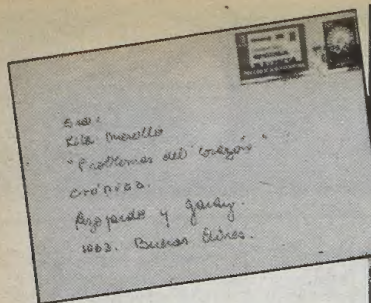 Sra:
"Problemas del corazón"
crónica.
Azopardo y Garay.
1063. Buenos Aires.